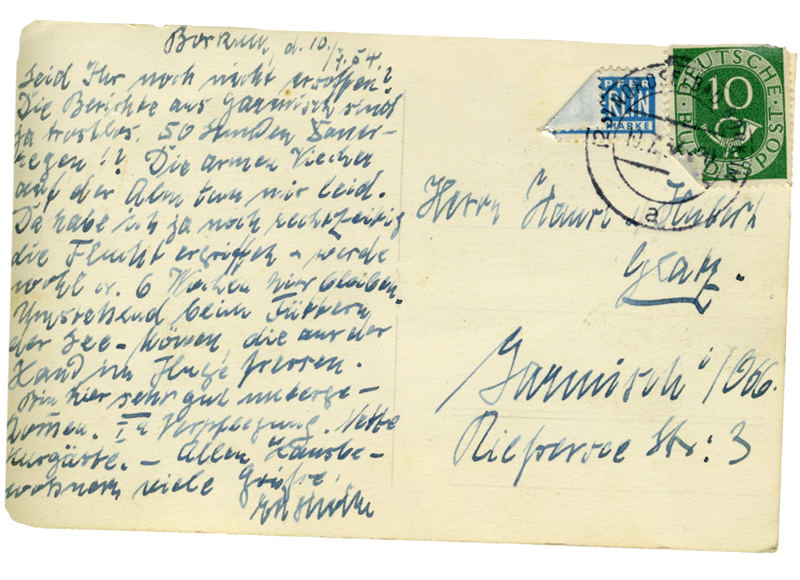 Borkum, d. 10./7.54.
Seid Ihr noch nicht ersoffen?
Die Berichte aus Garmisch sind
ja trostlos. 50 Stunden Dauer-
regen!? Die armen Viecher
auf der Alm tun mir leid.
Da habe ich ja noch rechtzeitig
die Flucht ergriffen – werde
wohl ca. 6 Wochen hier bleiben.
Umstehend beim Füttern
der See-Löwen, die aus der
Hand im Fluge fressen.
Bin hier sehr gut unterge-
kommen. Ia Verpflegung. Nette
Kurgäste. – Allen Hausbe-
wohnern viele Grüße,
Herrn Hubert
Graz.
Garmisch i/Obb.
Riesserseestr: 3
NOTOPFER
BERLIN
STEUERMARKE
DEUTSCHE BUNDESPOST
10
a